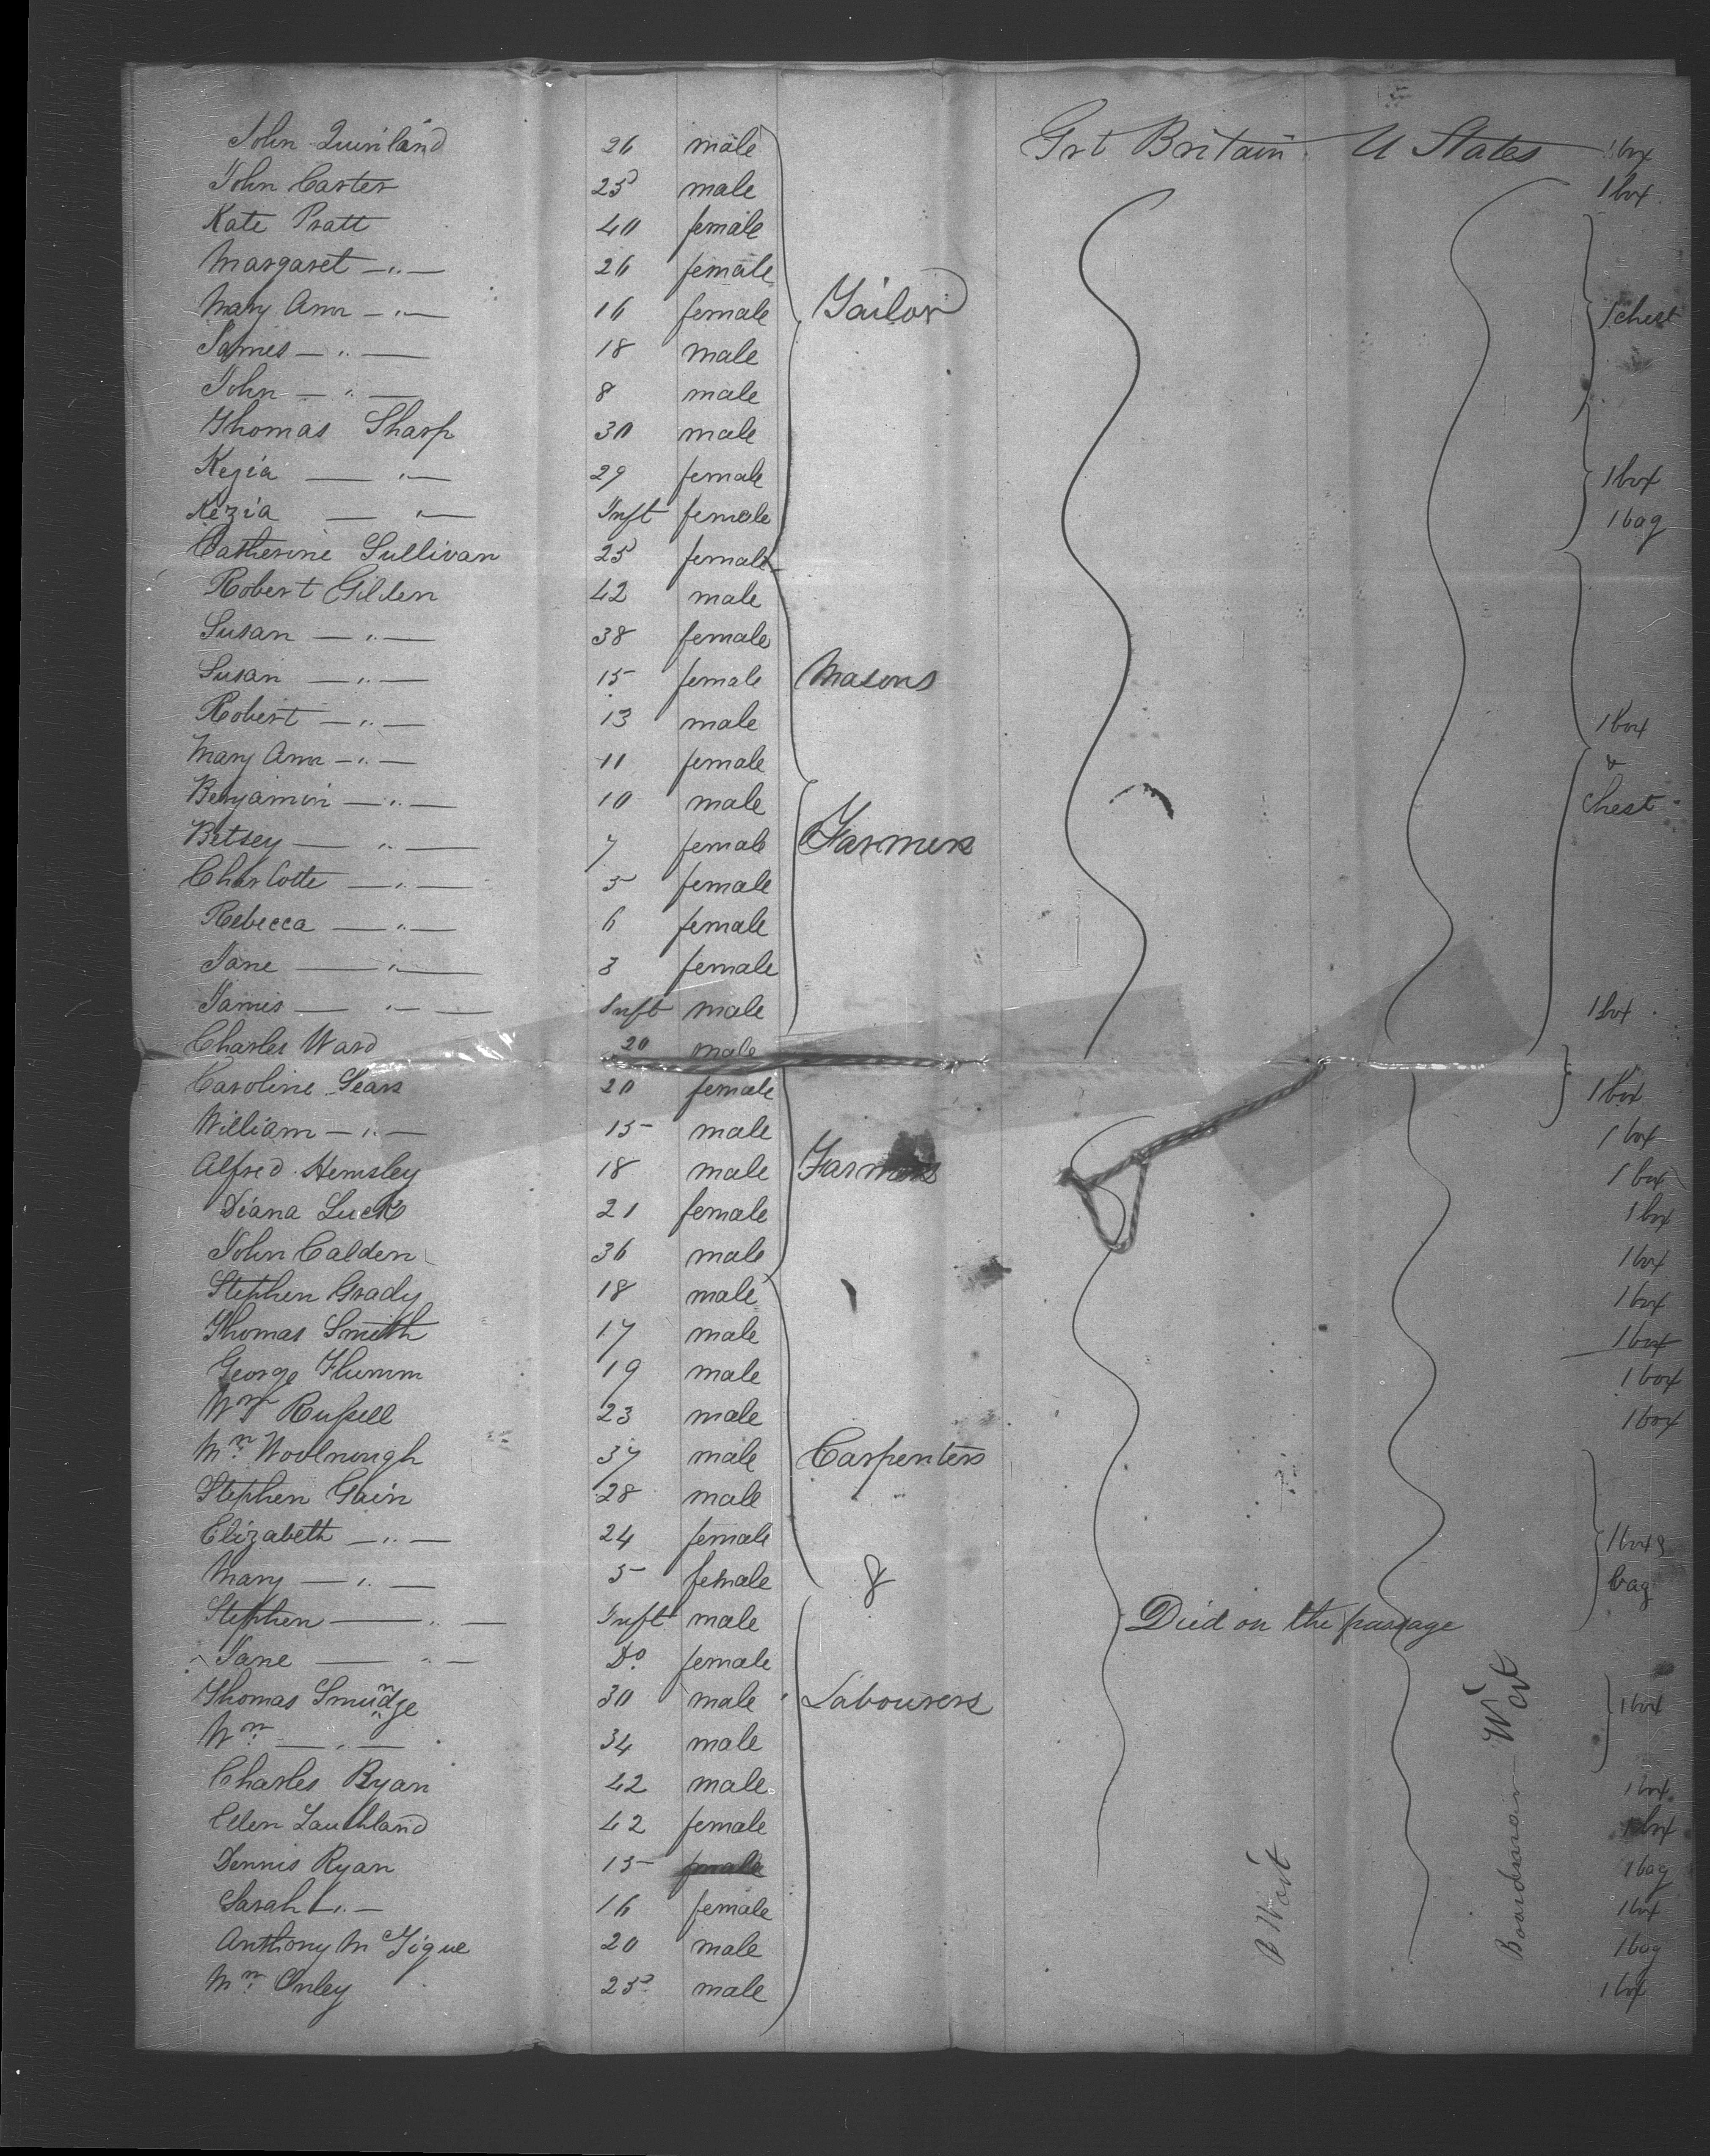 John Quinland 26 male Grt Britain U States 1 box
John Carter 25 male 1 box
Kate Pratt 40 female
Margaret — " — 26 female
Mary Ann — " — 16 female Tailor 1 chest
James — " — 18 male
John — " — 8 male
Thomas Sharp 30 male
Kezia — " — 29 female 1 box
Kezia — " — Inft female 1 bag
Catherine Sullivan 25 female
Robert Gilden 42 male
Susan — " — 38 female
Susan — " — 15 female Masons
Robert — " — 13 male 1 box
Mary Ann — " — 11 female &
Benjamin — " — 10 male chest
Betsey — " — 7 female Farmers
Charlotte — " — 5 female
Rebecca — " — 6 female
Jane — " — 3 female
James — " — Inft male 1 box
Charles Ward 20 male
Caroline Sears 20 female 1 box
William — " — 15 male 1 box
Alfred Hemsley 18 male Farmers 1 box
Diana Luck 21 female 1 box
John Calden 36 male 1 box
Stephen Grady 18 male 1 box
Thomas Smith 17 male 1 box
George Flumm 19 male 1 box
Wm Rufsell 23 male 1 box
Wm Woolnough 37 male Carpenters
Stephen Gain 28 male
Elizabeth — " — 24 female 1 box &
Mary — " — 5 female & bag
Stephen — " — Inft male Died on the passage
Jane — " — Do female
Thomas Smudge 30 male Labourers 1 box
Wm — " — 34 male
Charles Ryan 42 male 1 box
Ellen 42 female 1 box
Dennis Ryan 15 1 bag
Sarah — " — 16 female 1 box
Anthony McTigue 20 male 1 bag
Wm Onley 25 male 1 box